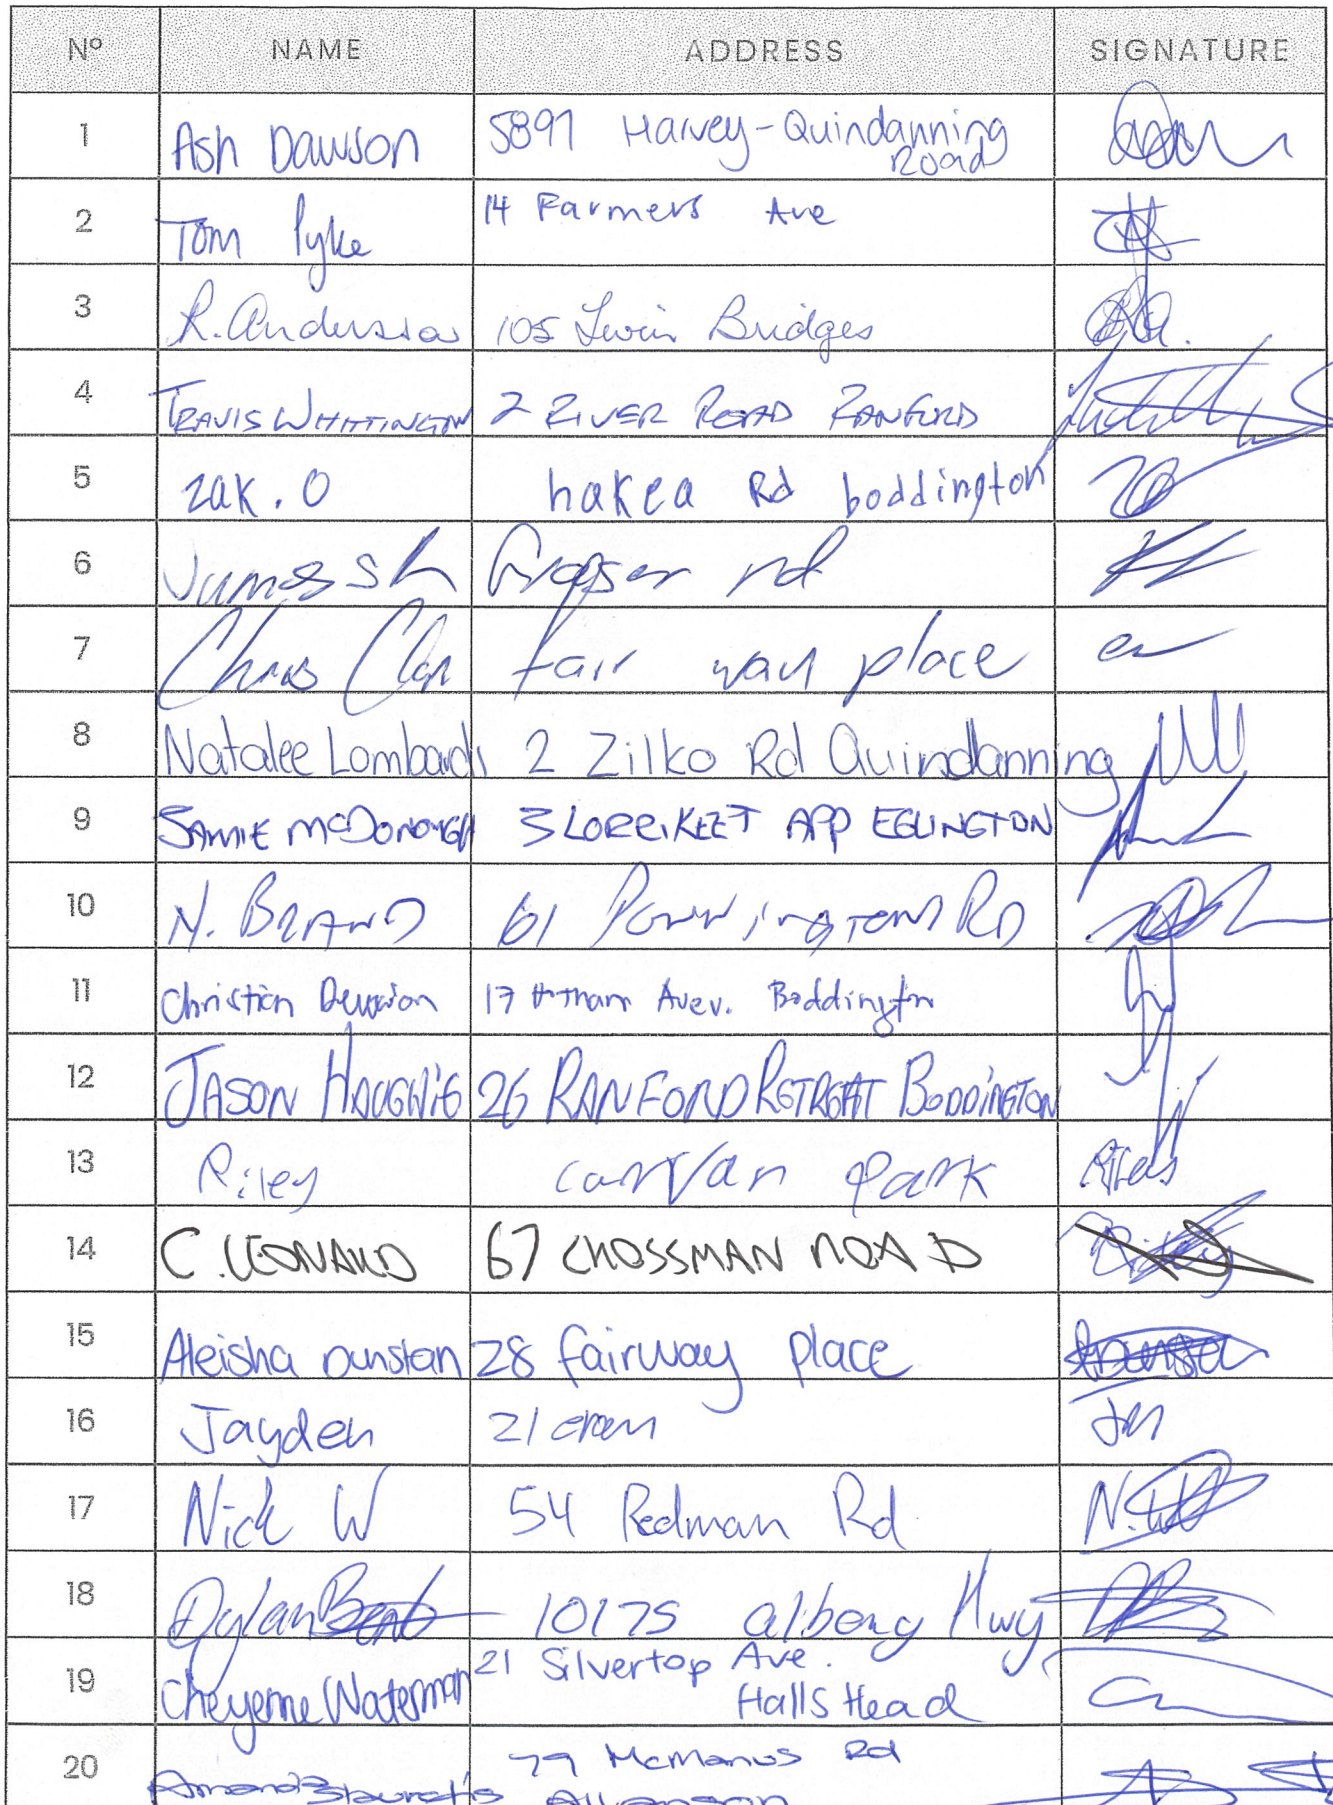 Nº NAME ADDRESS SIGNATURE
1 Ash Dawson 5897 Harvey-Quindanning Road
2 Tom Pyke 14 Farmers Ave
3 R. Anderson 105 Twin Bridges
4 TRAVIS WHITTINGTON 2 RIVER ROAD RANFORD
5 zak. O hakea Rd boddington
6 James rd
7 Chris fair way place
8 Natalee Lombardi 2 Zilko Rd Quindanning
9 JAMIE McDONOUGH 3 LORRIKEET APP EGLINGTON
10 N. BRAND 61 RD
11 Christian 17 Avev. Boddington
12 JASON 26 RANFORD RETREAT BODDINGTON
13 Riley carrVan Park Riley
14 C. LEONARD 67 CROSSMAN ROAD
15 Aleisha Dunstan 28 fairway place
16 Jayden 21
17 Nick W 54 Redman Rd N.W
18 Dylan 10175 albany Hwy
19 Cheyenne Waterman 21 Silvertop Ave.
Halls Head
20 79 McManus Rd